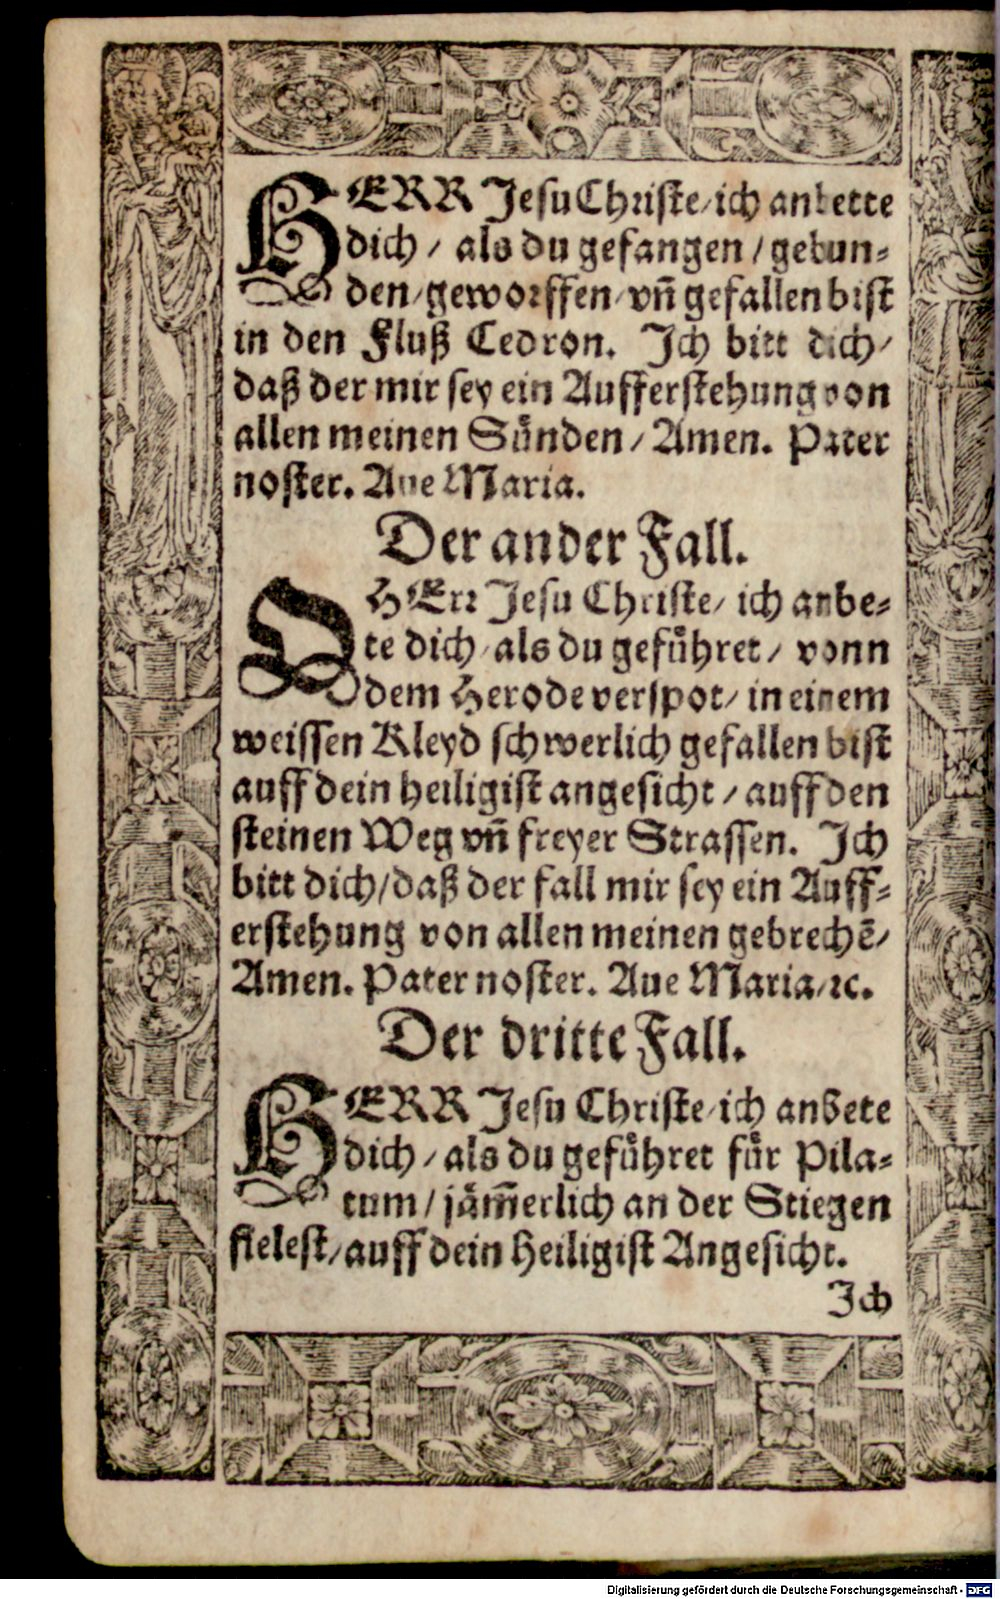 HERR Jesu Christe/ ich anbette
dich / als du gefangen / gebun⸗
den/ geworffen/ vñ gefallen bist
in den Fluß Cedron. Ich bitt dich/
daß der mir sey ein Aufferstehung von
allen meinen Sünden / Amen. Pater
noster. Aue Maria.
Der ander Fall.
O HErr Jesu Christe/ ich anbe⸗
te dich/ als du geführet / vonn
dem Herode verspot/ in einem
weissen Kleyd schwerlich gefallen bist
auff dein heiligist angesicht / auff den
steinen Weg vñ freyer Strassen. Ich
bitt dich/ daß der fall mir sey ein Auff⸗
erstehung von allen meinen gebrechẽ/
Amen. Pater noster. Aue Maria/ ꝛc.
Der dritte Fall.
HERR Jesu Christe/ ich anbete
dich / als du geführet für Pila⸗
tum / jäm̃erlich an der Stiegen
fielest/ auff dein Heiligist Angesicht.
Ich
Digitalisierung gefördert durch die Deutsche Forschungsgemeinschaft - DFG